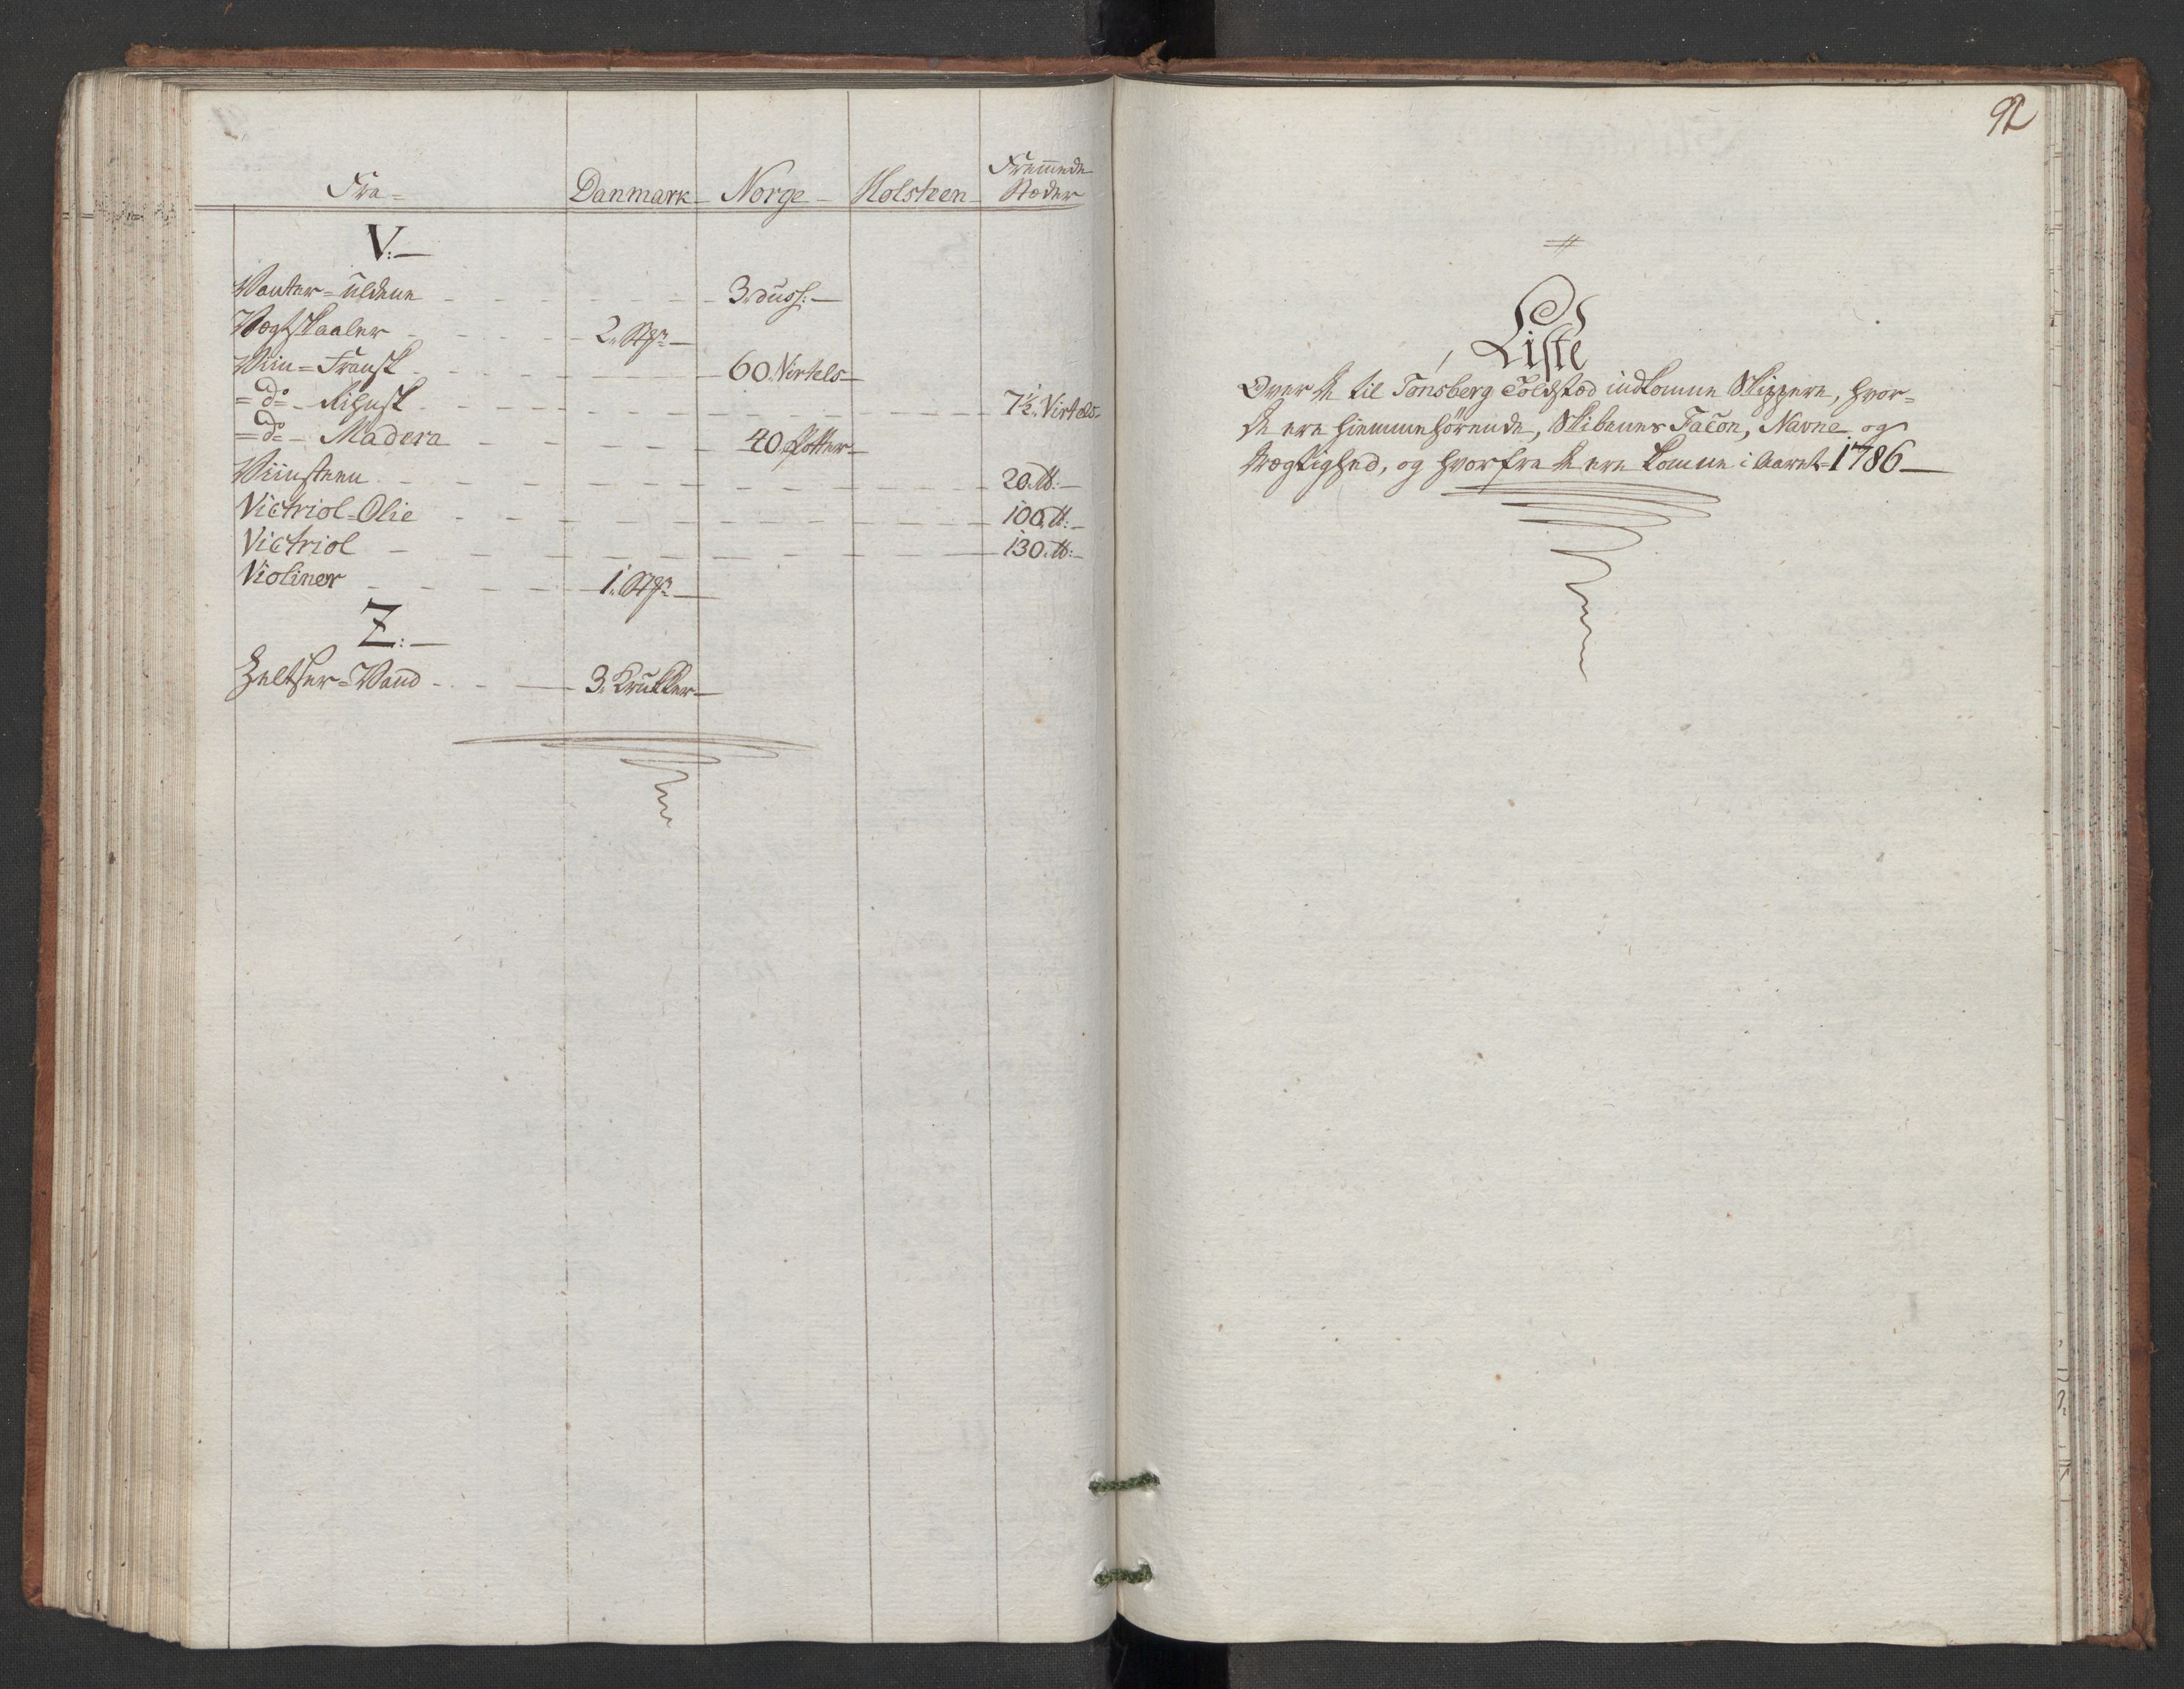 Fra = Danmark - Norge - Holsteen - Fremmede Stæder
V:-
Vanter = uldene - 3. duss:-
Vogtskaaler - 2. Stkr -
Viin = Fransk - 60. Virtels -
= do - Rhinsk - 7 1/2. Virtels -
= do - Madera - 40. Potter -
Viinsteen - 20. lb:-
Victriol = Olie - 100. lb:-
Victriol - 130. lb:-
Violiner - 1. Stkr -
Z:-
Zeltser = Vand - 3. Krukker -
92
Liste
Over de til Tønsberg Toldsted indkomne Skippere, hvor=
de ere hiemmehørende, Skibenes Facon, Navne og
Drægtighed, og hvorfra de ere komne i Aaret = 1786 -